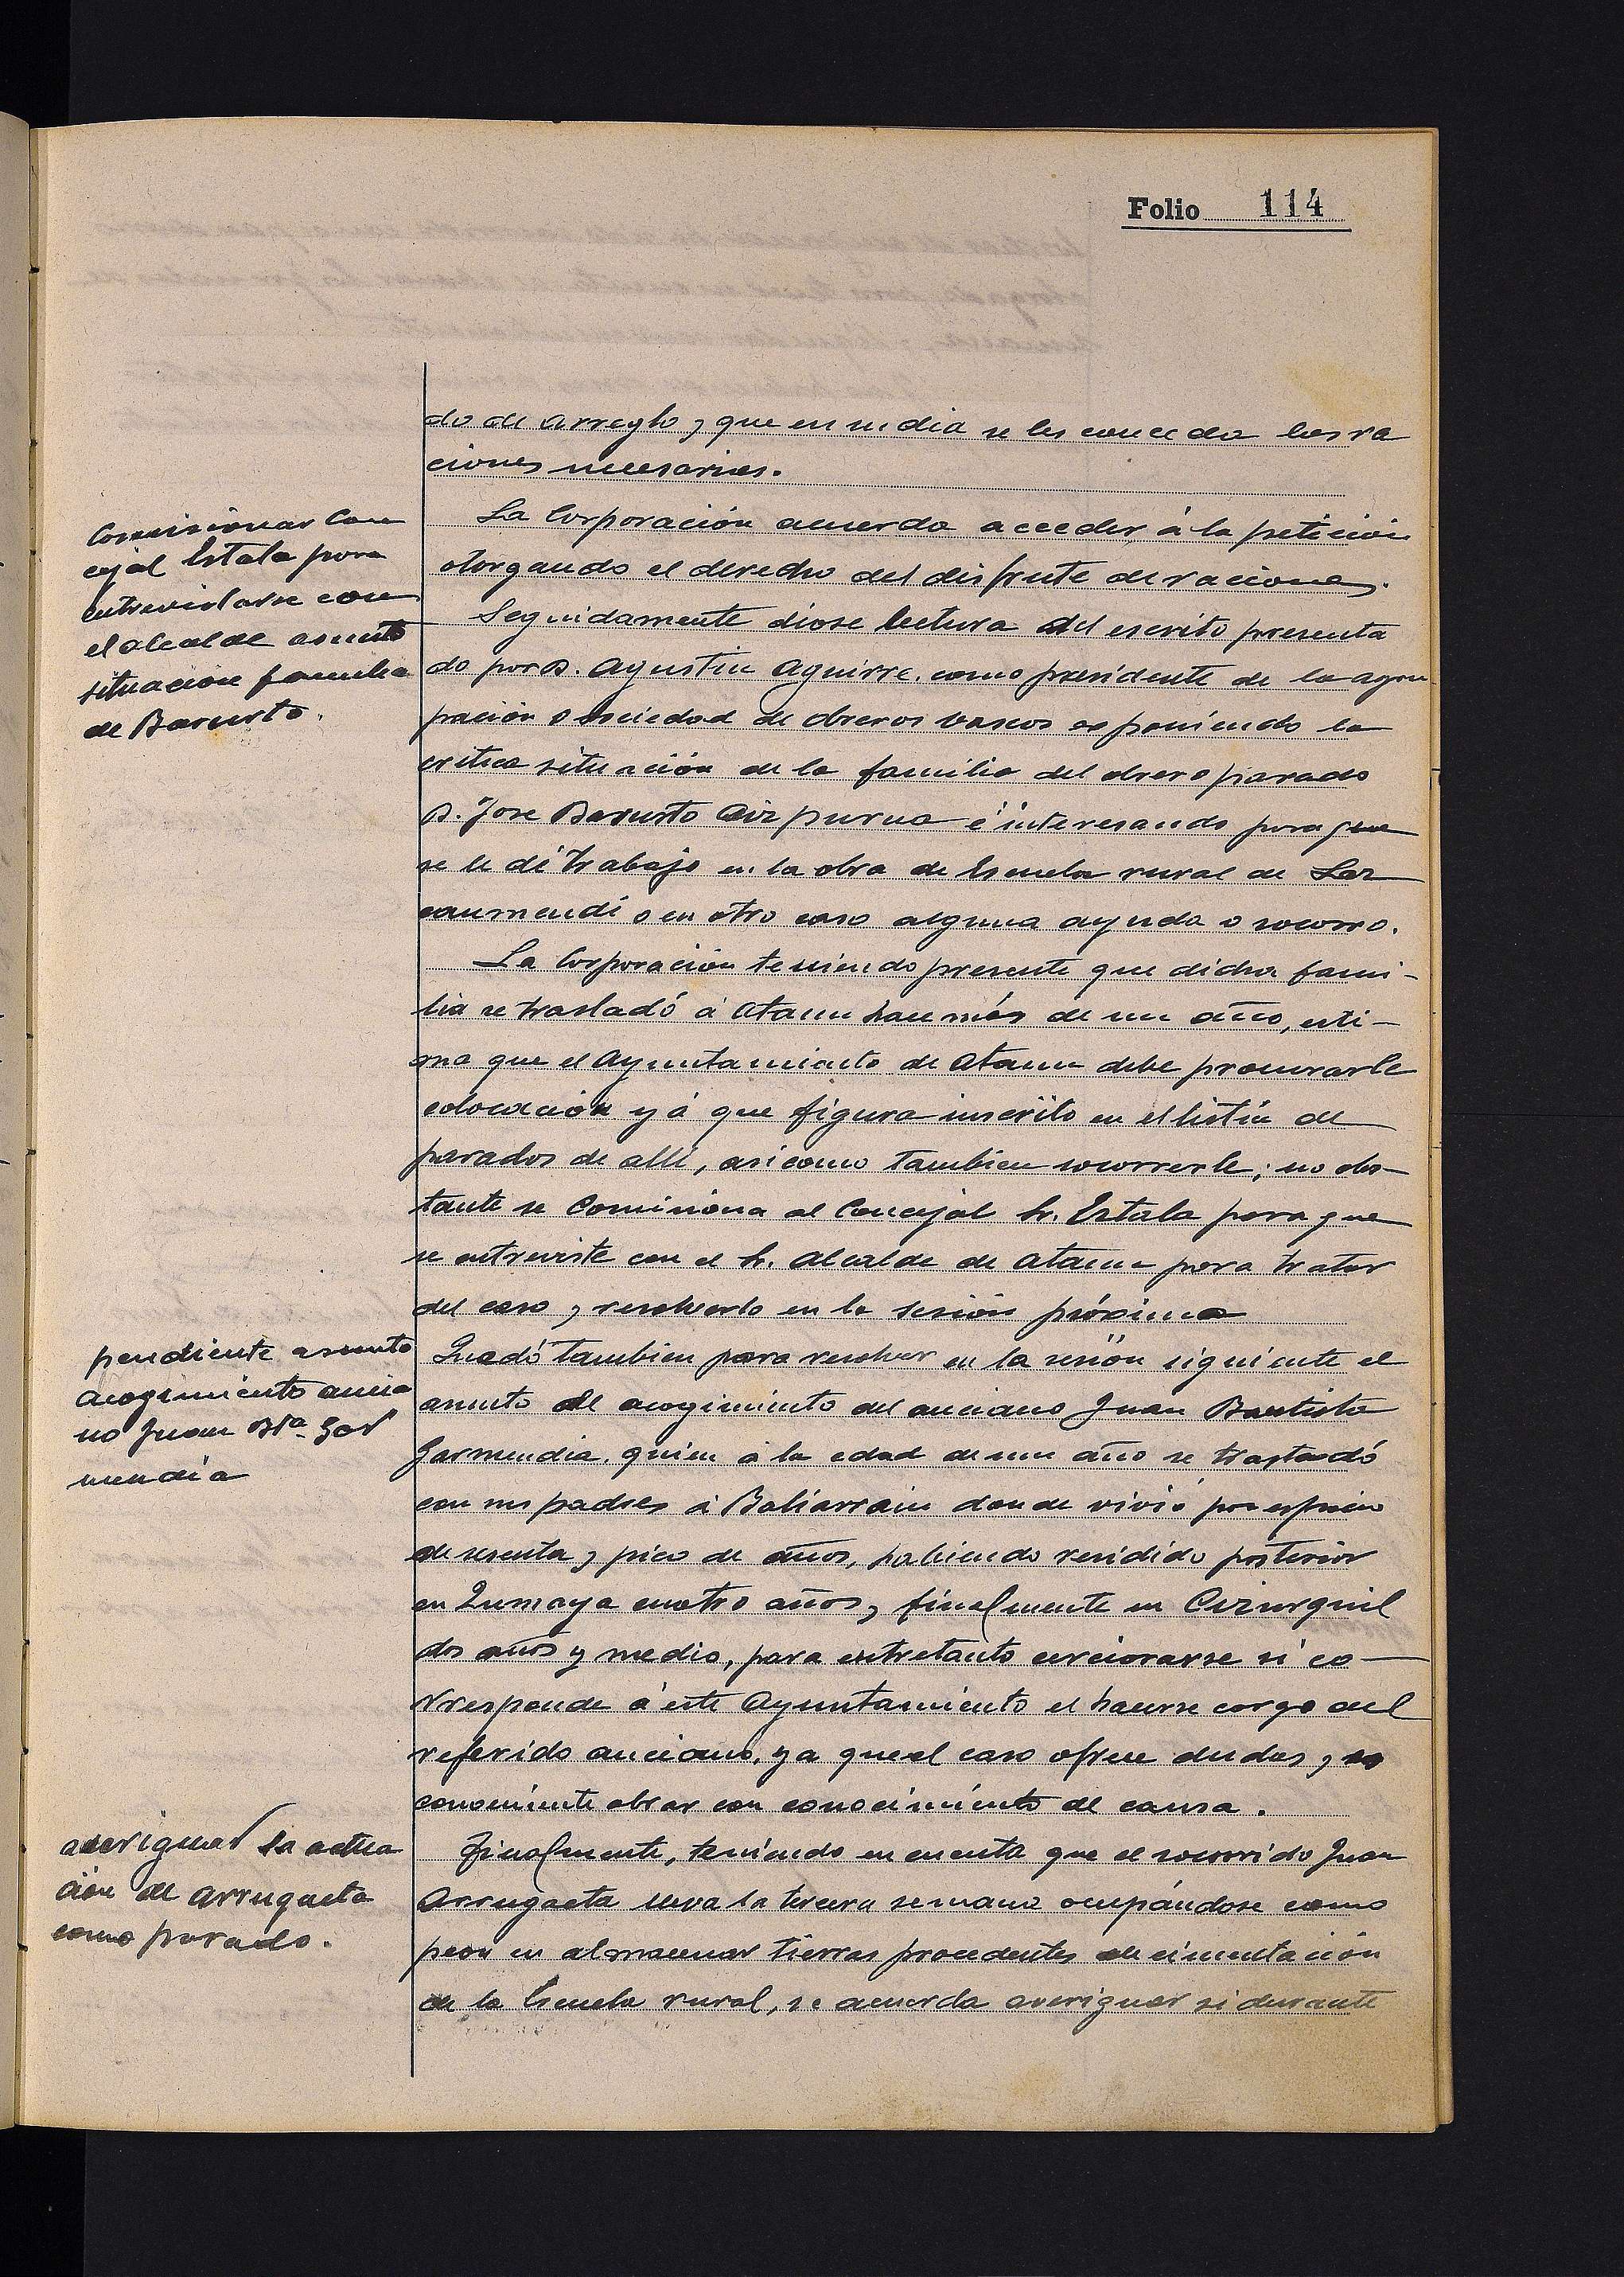 Folio 114
do de arreglo y que en su dia se les conceda las ra
ciones necesarias.
Comisionar Con
cejal Estala para
entrevistarse con
el alcalde asunto
situacion familia
de Barusto.
La Corporación acuerda acceder á la petición
otorgando el derecho del disfrute de raciones.
Seguidamente diose lectura del escrito presenta
do por D. Agustin Aguirre, como presidente de la agru
pación o sociedad de obreros vascos exponiendo la
critica situación de la familia del obrero parado
D. Jose Barusto Aizpurua é interesando para que
se le dé trabajo en la obra de Escuela rural de Laz
caumendi o en otro caso alguna ayuda o socorro.
La Corporación teniendo presente que dicha fami-
lia se trasladó á Ataun hace más de un año, esti-
ma que el Ayuntamiento de Ataun debe procurarle
colocación yá que figura inscrito en el listin de
parados de alli, asi como tambien socorrerle; no obs-
tante se Comisiona al Concejal Sr. Estala para que
se entreviste con el Sr. Alcalde de Ataun para tratar
del caso y resolverlo en la sesión próxima
pendiente asunto
acogimiento ancia
no Juan Bta. Gar
mendia
Quedó tambien para resolver en la sesión siguiente el
asunto del acogimiento del anciano Juan Bautista
Garmendia, quien á la edad de un año se trastadó
con sus padres á Baliarrain donde vivió por espacio
de sesenta y pico de años, habiendo residido posterior
en Zumaya cuatro años y finalmente en Cizurquil
dos años y medio, para entretanto cerciorarse si co-
rresponde á este Ayuntamiento el hacerse cargo del
referido anciano, ya que el caso ofrece dudas y es
conveniente obrar con conocimiento de causa.
averiguar la actua
ción de Arrugaeta
como parado.
Finalmente, teniendo en cuenta que el socorrido Juan
Arrugaeta lleva la tercera semana ocupándose como
peon en almacenar tierras procedentes de cimentación
de la Escuela rural, se acuerda averiguar si durante